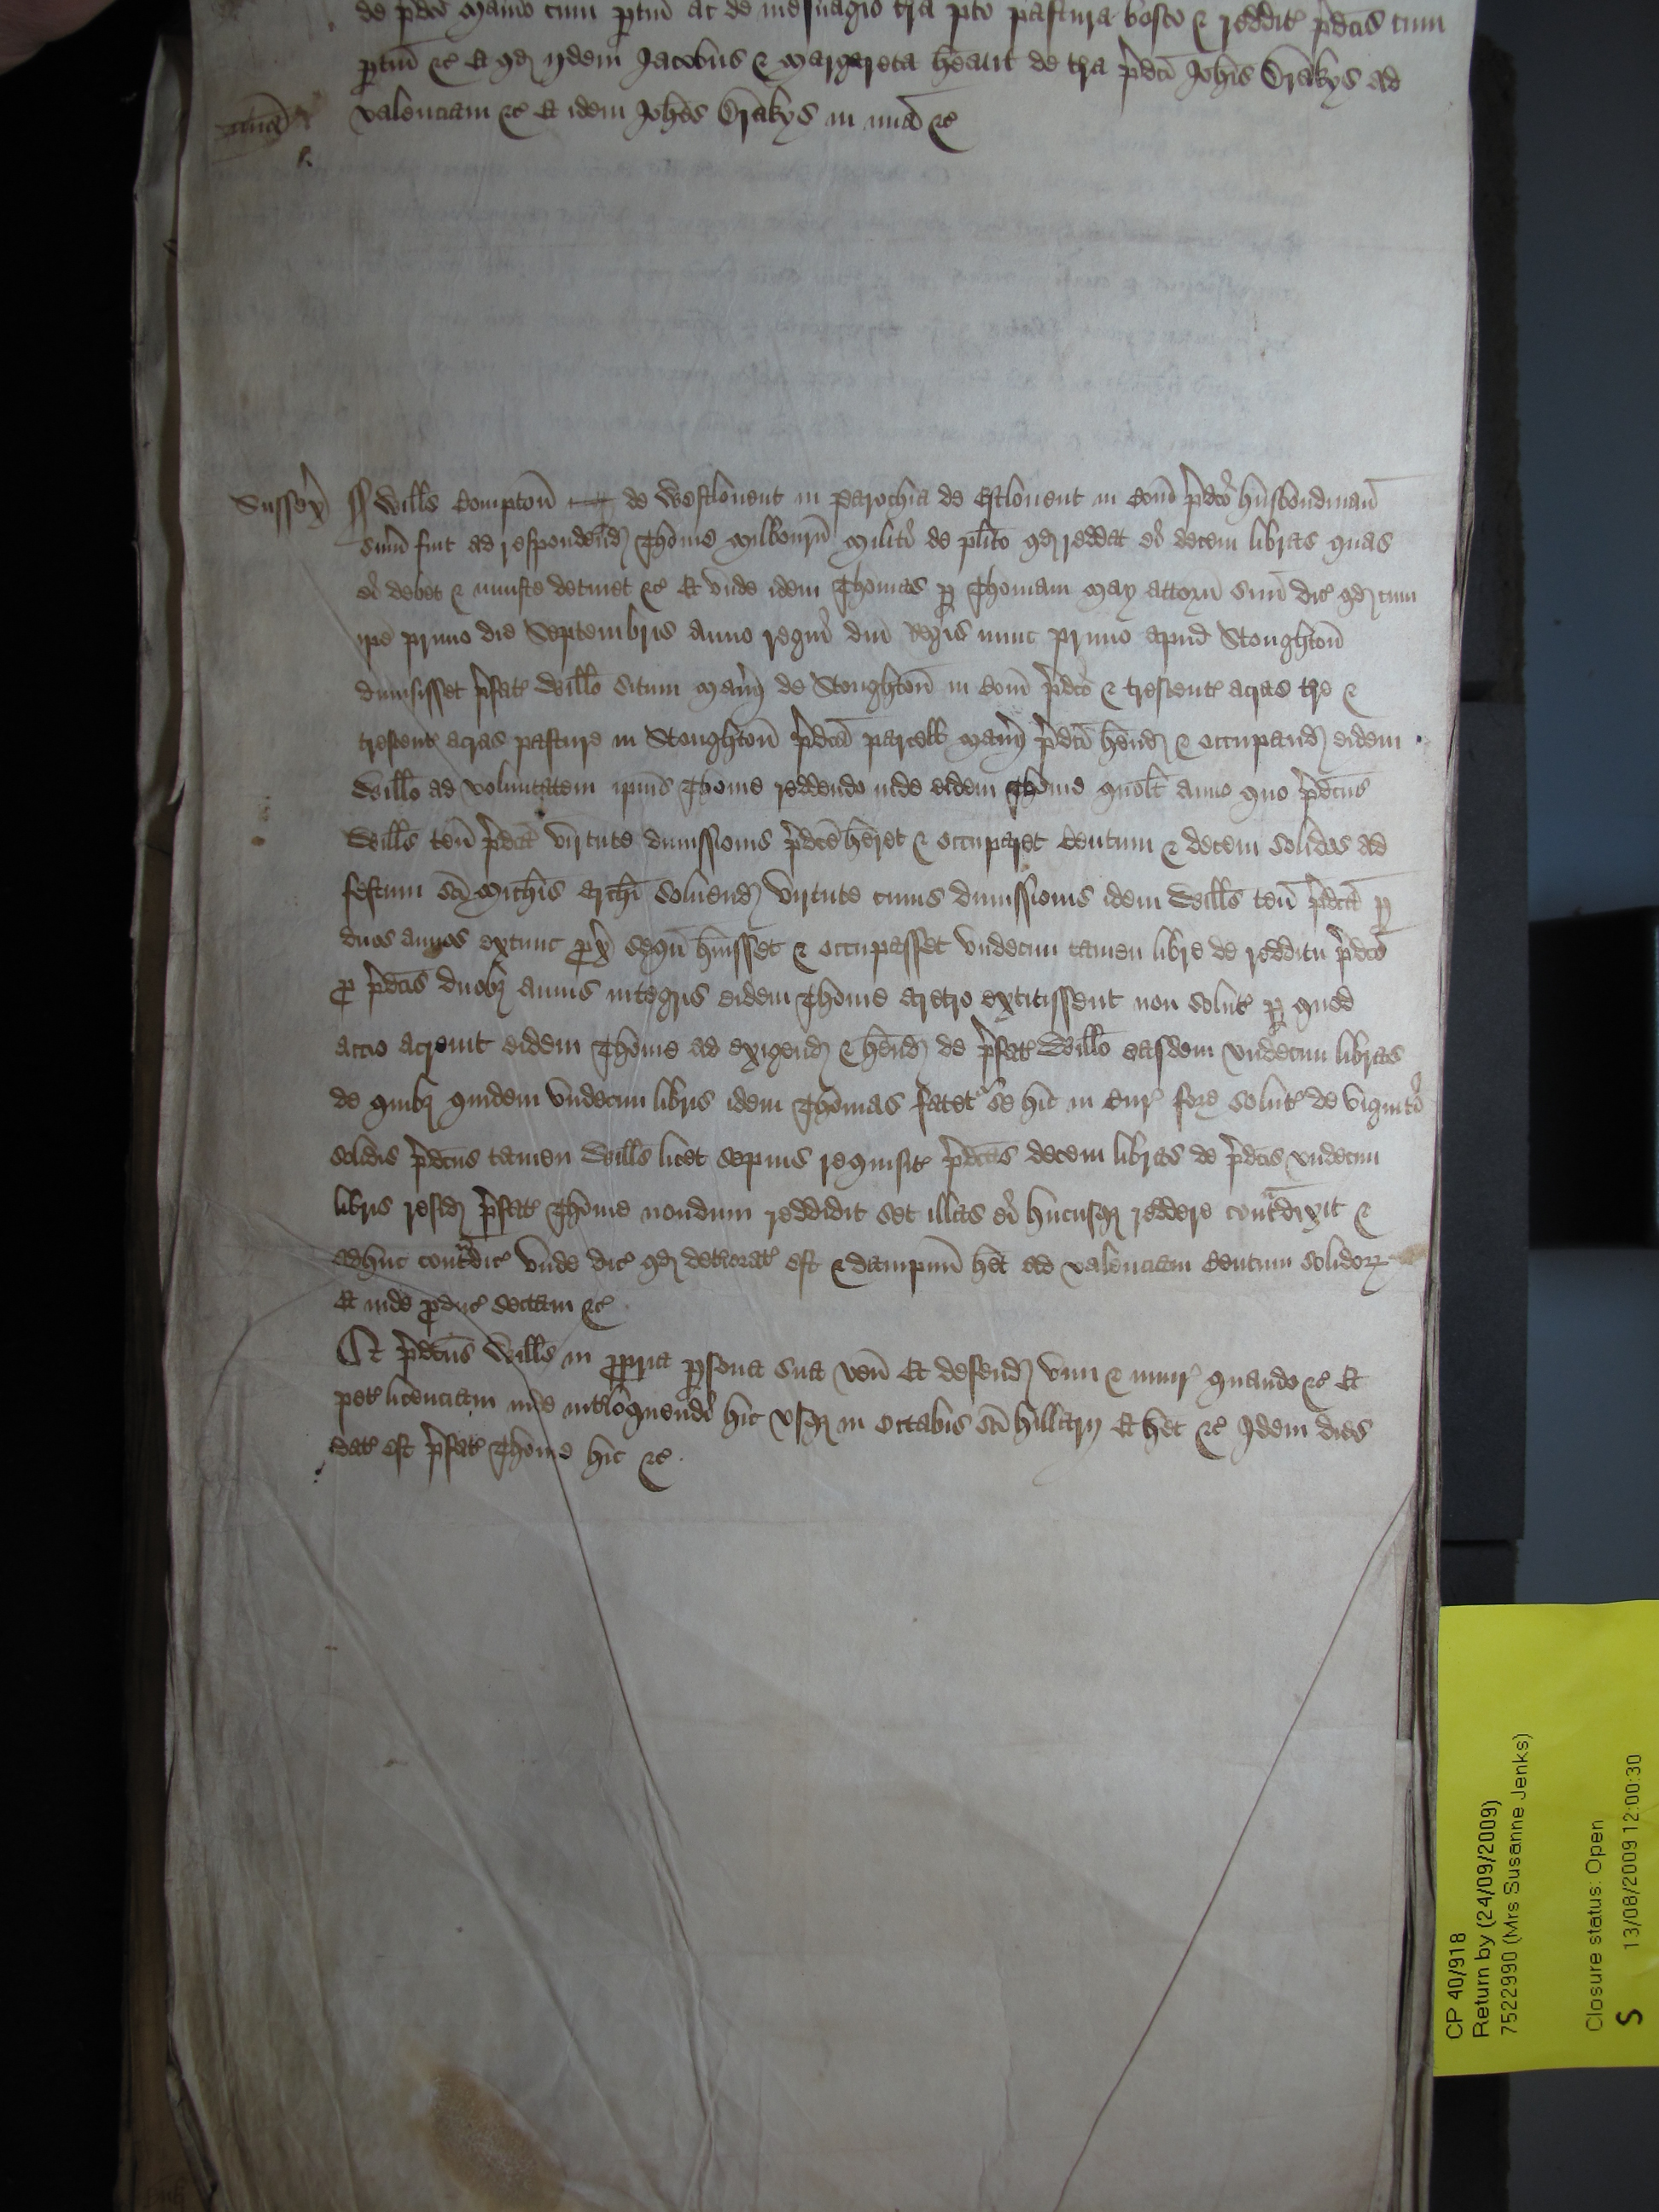 de p̄dcō Man̄io cum p̱tin̄ ac de mesuagio tr̄a p̄to pastura bosco & reddit᷒ p̄dcīs cum
p̱tin̄ &c Et qd̄ ijdem Jacobus & Margareta hēant de tr̄a p̄dcī Joh̄is Orakys ad
valenciam &c Et idem Joh̄es Orakys in mīa &c
mīa
Sussex̄ ss Wills Compton̄ de Westlovent in parochia de Estlovent in Com̄ p̄dcō husbondman̄
sum̄ fuit ad respondend̄ Thōme Milbourn̄ Militi de pl̄ito qd̄ reddat ei decem libras quas
ei debet & iniuste detinet &c Et vnde idem Thomas p̱ Thomam May attorn̄ suū dic᷒ qd̄ cum
ip̄e primo die Septembris anno regni dn̄i Regis nunc primo apud Stoughton̄
dimisisset p̄fat᷒ Willo situm Man̄ij de Stoughton̄ in Com̄ p̄dcō & trescent᷒ acras tr̄e &
trescent᷒ acras pasture in Stoughton̄ p̄dcā parcell Man̄ij p̄dcī hēnd̄ & occupand̄ eidem
Willo ad voluntatem ip̄ius Thome reddendo inde eidem Thōme quolt̄ anno quo p̄dcūs
Wills ten̄ p̄dcā virtute dimissionis p̄dcē hēret & occuparet Centum & decem solidos ad
festum Scī Mich̄is Arch̄i soluend̄ virtute cuius dimissionis idem Wills ten̄ p̄dcā p̱
duos annos extunc p̱x̄ seqū h̄uisset & occupasset vndecim tamen libre de redditu p̄dcō
p̱ p̄dcīs duobȝ annis integris eidem Thōme aretro extitissent non solut᷒ p̱ quod
accio acreuit eidem Thōme ad exigend̄ & hēnd̄ de p̄fat᷒ Willo easdem vndecim libras
de quibȝ quidem vndecim libris idem Thōmas fatet᷒ se hic in Cur᷒ fore solut᷒ de viginti
solidis p̄dcūs tamen Wills licet sepius requisit᷒ p̄dcās decem libras de p̄dcīs vndecim
libris resid̄ p̄fat᷒ Thōme nondum reddidit set illas ei hucusqȝ reddere cont̄dixit &
adhuc cont̄dic᷒ vnde dic᷒ qd̄ det̄iorat᷒ est & dampnū h̄et ad valenciam Centum solidoꝝ
Et inde p̱duc᷒ sectam &c
Et p̄dcūs Wills in p̱pria p̱sona sua ven̄ Et defend̄ vim & iniur᷒ quando &c Et
pet᷒ licenciam inde int̄loquendi hic vsqȝ in Octabis Scī Hillarij Et h̄et &c Idem dies
dat᷒ est p̄fat᷒ Thome hic &c
CP 40/918
Return by (24/09/2009)
7522990 (Mrs Susanne Jenks)
Closure status: Open
S 13/08/2009 12:00:30